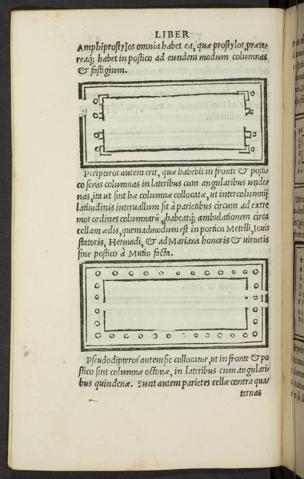 LIBER
Amphiprostylos omnia habet ea, quæ prostylos, præte-
reaq; habet in postico ad eundem modum columnas
& fastigium.
Peripteros autem erit, quæ habebit in fronte & posti-
co senas columnas in lateribus cum angularibus unde-
nas, ita ut sint hæ columnæ collocatæ, ut intercolumnij
latitudinis interuallum sit à parietibus circum ad extre
mos ordines columnarũ, habeatq; ambulationem circa
cellam ædis, quemadmodum est in porticu Metelli, Iouis
statoris, Hermodi, & ad Mariana honoris & uirtutis
sine postico à Mutio facta.
Pseudodipteros autem sic collocatur, ut in fronte & po
stico sint columnæ octonæ, in lateribus cum angulari
bus quindenæ. Sunt autem parietes cellæ contra qua
ternas